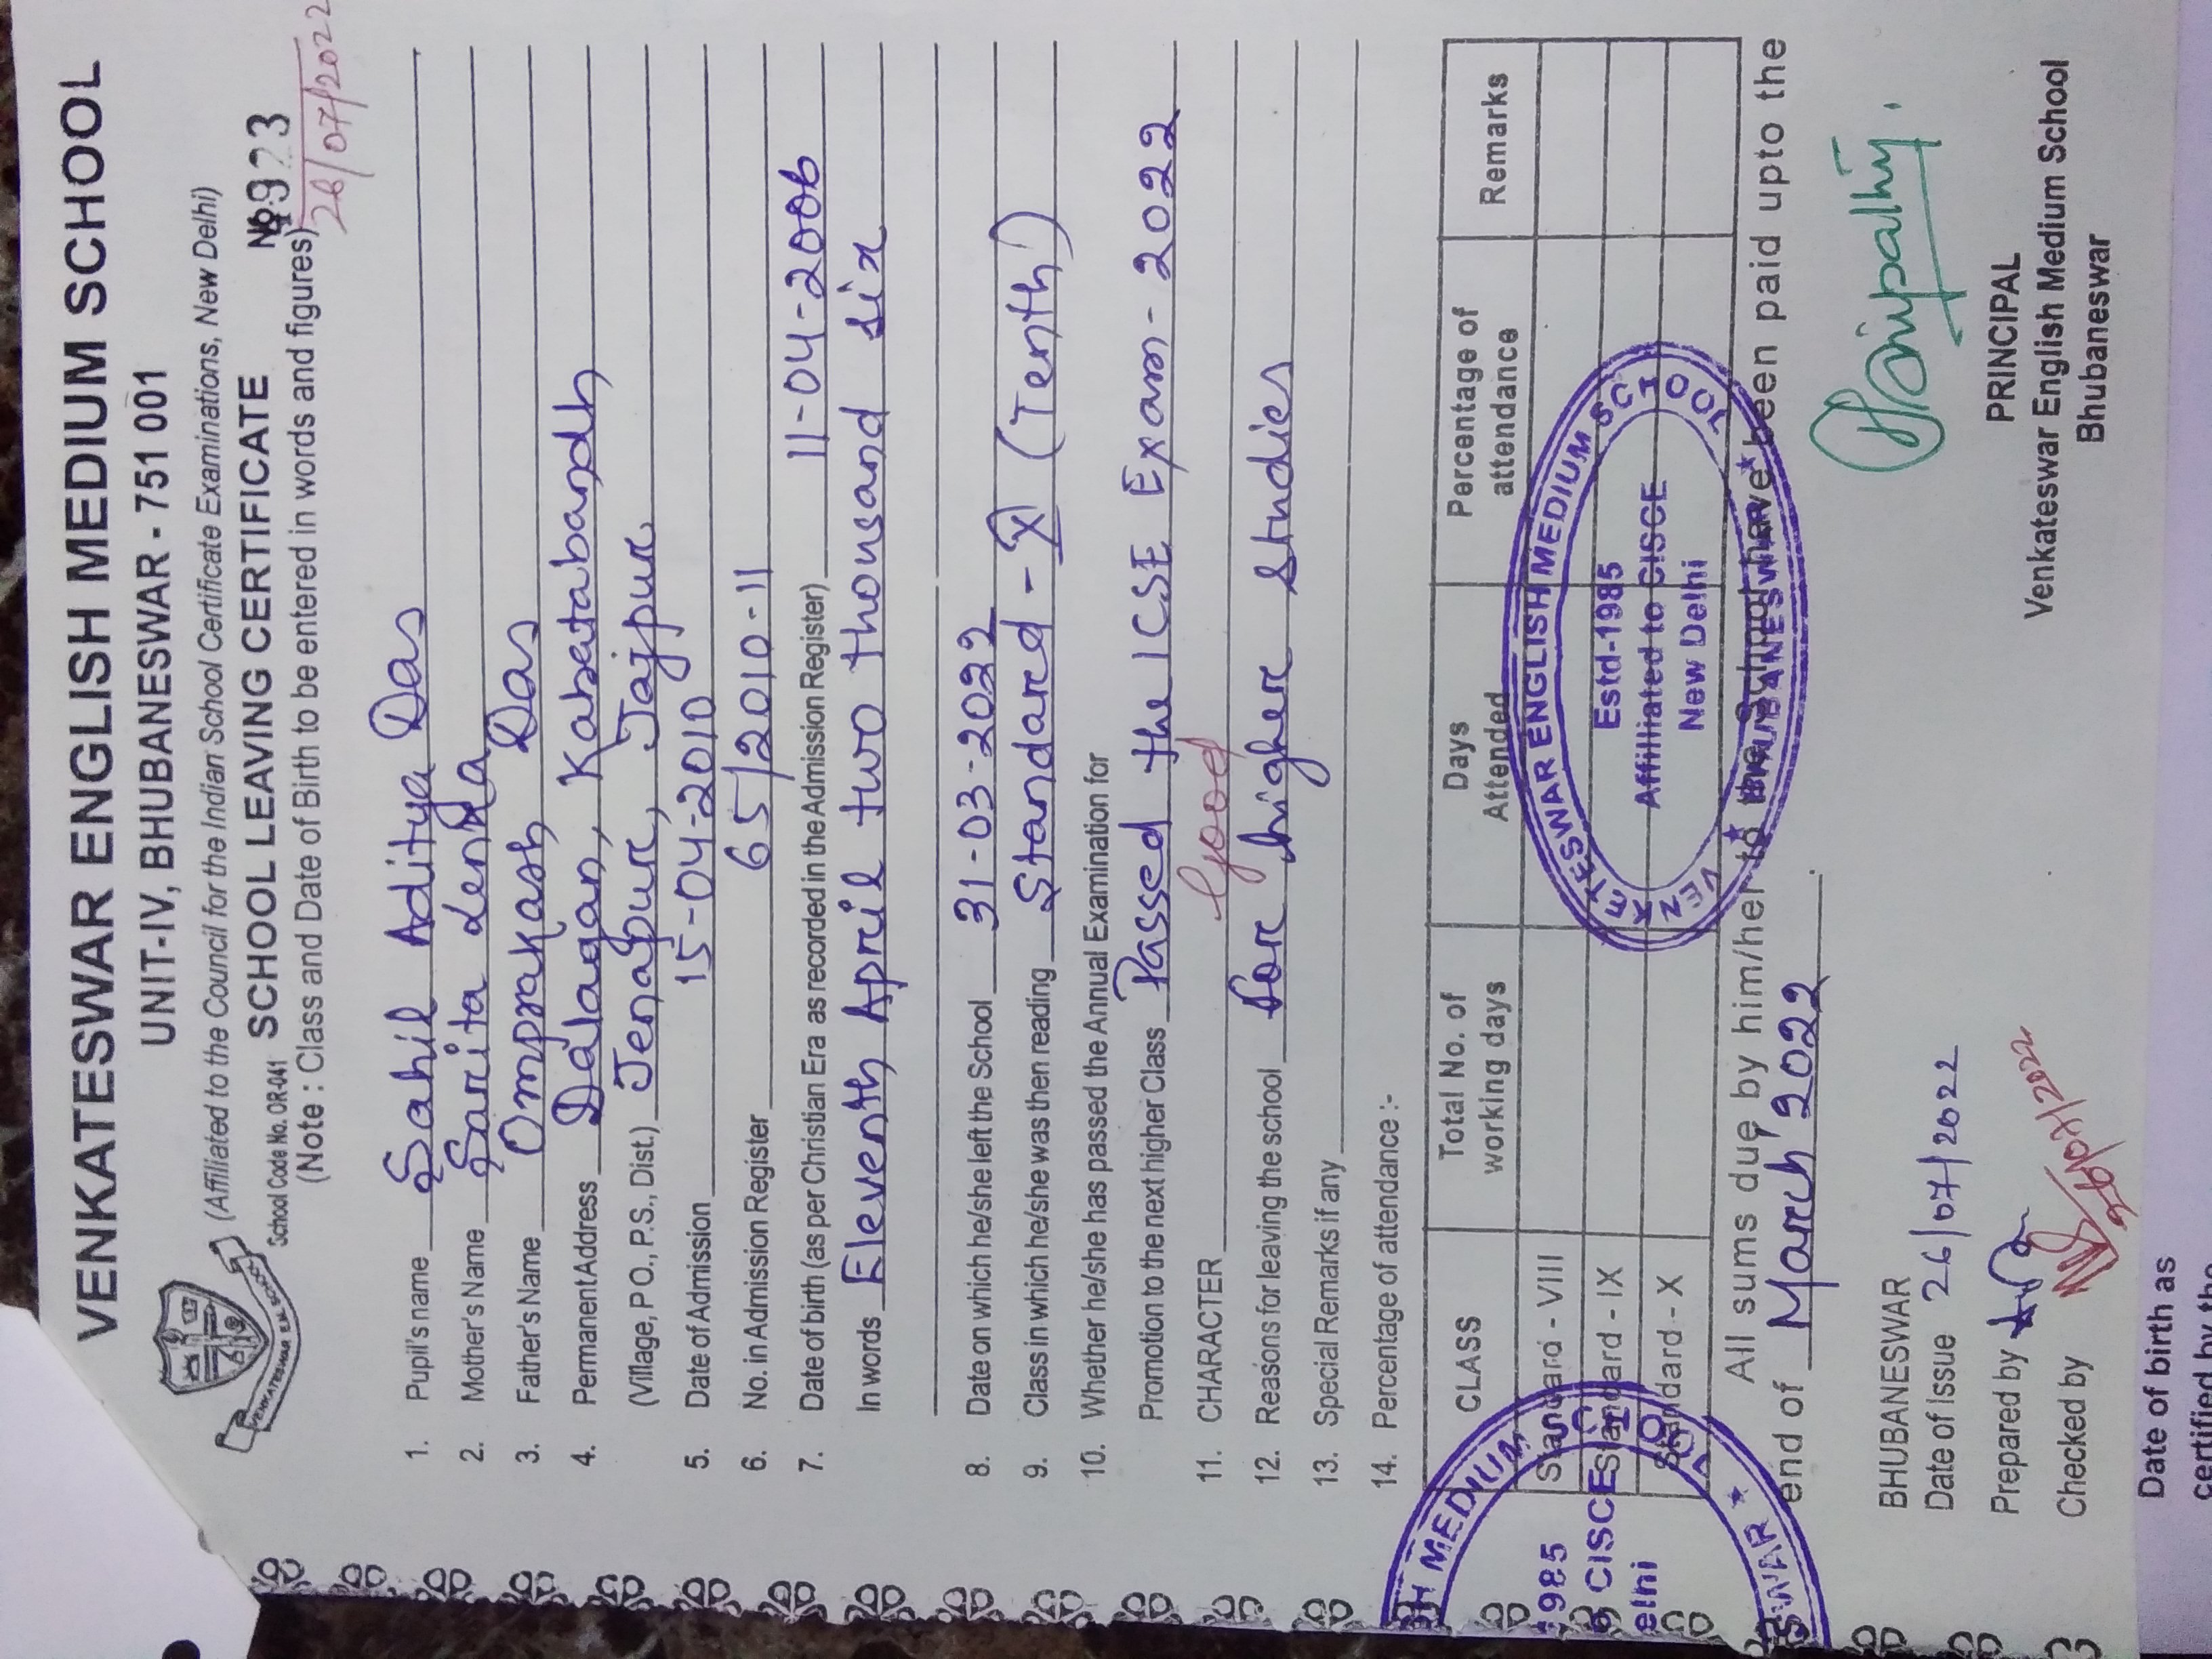 VENKATESWAR ENGLISH MEDIUM SCHOOL
UNIT-IV, BHUBANESWAR - 751 001
(Affiliated to the Council for the Indian School Certificate Examinations, New Delhi)
School Code No. OR-041 SCHOOL LEAVING CERTIFICATE No 923
(Note : Class and Date of Birth to be entered in words and figures) 26/07/2022
VENKATESWAR E.M. SCHOOL
1. Pupil's name Sahil Aditya Das
2. Mother's Name Sarita Lenka
3. Father's Name Omprakash Das
4. Permanent Address Dalagan, Kabatabandh
(Village, P.O., P.S., Dist.) Jenapur, Jajpur
5. Date of Admission 15-04-2010
6. No. in Admission Register 65/2010-11
7. Date of birth (as per Christian Era as recorded in the Admission Register) 11-04-2006
In words Eleventh April two thousand six
8. Date on which he/she left the School 31-03-2022
9. Class in which he/she was then reading Standard - X (Tenth)
10. Whether he/she has passed the Annual Examination for
Promotion to the next higher Class Passed the ICSE Exam - 2022
11. CHARACTER Good
12. Reasons for leaving the school for higher studies
13. Special Remarks if any
14. Percentage of attendance :-
CLASS Total No. of working days Days Attended Percentage of attendance Remarks
Standard - VIII
Standard - IX
Standard - X
VENKATESWAR ENGLISH MEDIUM SCHOOL
Estd-1985
Affiliated to CISCE
New Delhi
★ BHUBANESWAR ★
SH MEDIUM SCHOOL
1985
CISCE
elhi
SWAR ★
All sums due by him/her to the School have been paid upto the
end of March' 2022
BHUBANESWAR
Date of Issue 26/07/2022
Prepared by
Checked by 26/07/2022
PRINCIPAL
Venkateswar English Medium School
Bhubaneswar
Date of birth as
certified by the